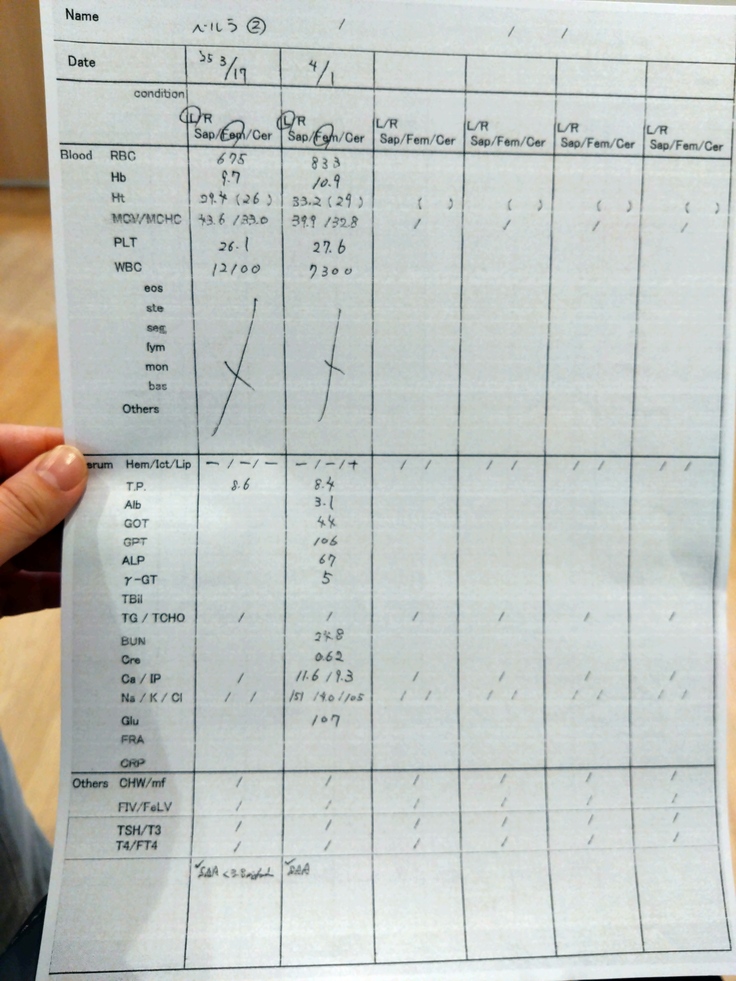 Name ベルラ ② / / /
Date '25 3/17 4/1
condition
L/R L/R L/R L/R L/R L/R
Sap/Fem/Cer Sap/Fem/Cer Sap/Fem/Cer Sap/Fem/Cer Sap/Fem/Cer Sap/Fem/Cer
Blood RBC 675 833
Hb 9.7 10.9
Ht 29.4 (26) 33.2 (29) ( ) ( ) ( ) ( )
MCV/MCHC 43.6 / 33.0 39.9 / 32.8 / / / /
PLT 26.1 27.6
WBC 12100 7300
eos
ste
seg
lym
mon
bas
Others
Hem/Ict/Lip - / - / - - / - / + / / / / / / / /
T.P. 8.6 8.4
Alb 3.1
GOT 44
GPT 106
ALP 67
γ-GT 5
TBil
TG / TCHO / / / / / /
BUN 24.8
Cre 0.62
Ca / IP / 11.6 / 9.3 / / / /
Na / K / Cl / / 151 / 4.0 / 105 / / / / / / / /
Glu 107
FRA
CRP
Others CHW/mf / / / / / /
FIV/FeLV / / / / / /
TSH/T3 / / / / / /
T4/FT4 / / / / / /
✓SAA ✓SAA